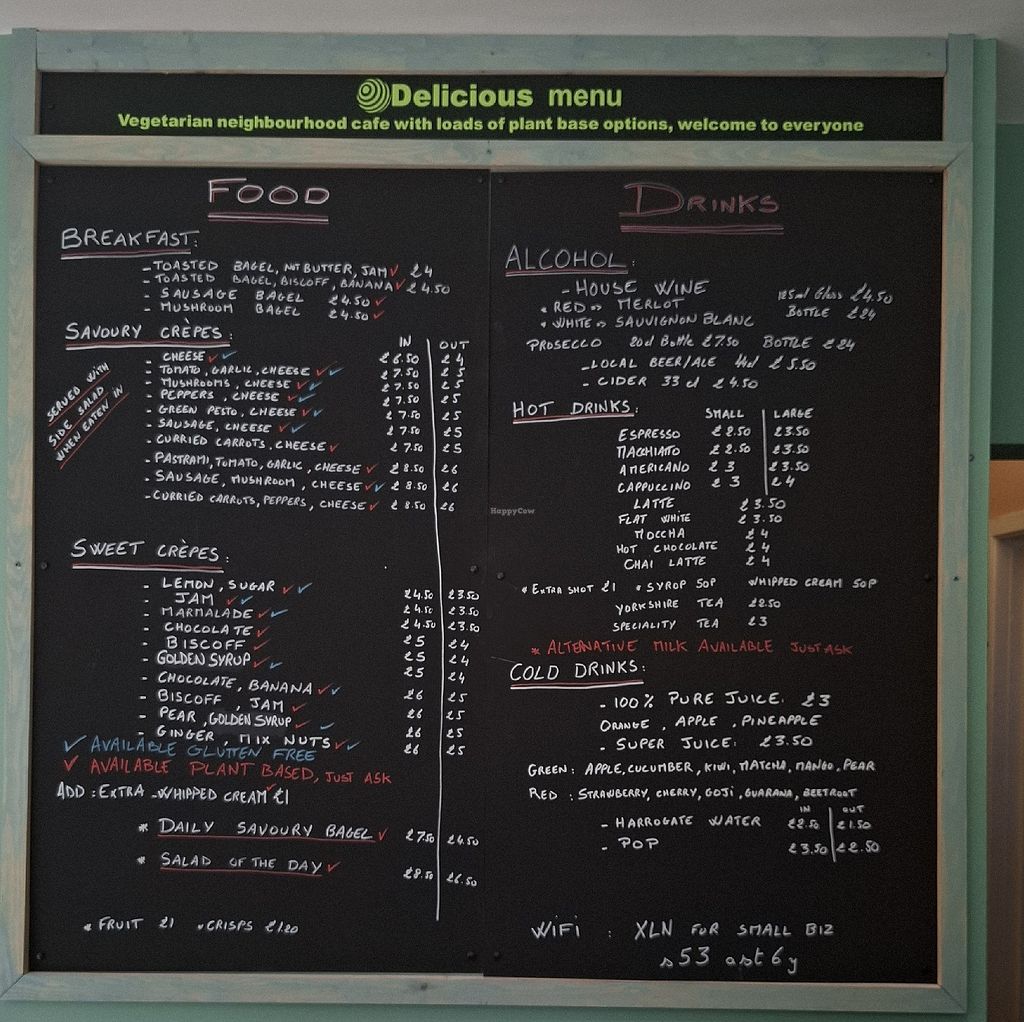 Delicious menu
Vegetarian neighbourhood cafe with loads of plant base options, welcome to everyone
FOOD
BREAKFAST:
- TOASTED BAGEL, NUT BUTTER, JAM ✓ £4
- TOASTED BAGEL, BISCOFF, BANANA ✓ £4.50
- SAUSAGE BAGEL £4.50 ✓
- MUSHROOM BAGEL £4.50 ✓
SAVOURY CRÈPES: IN OUT
SERVED WITH
SIDE SALAD
WHEN EATEN IN
- CHEESE ✓✓ £6.50 £4
- TOMATO, GARLIC, CHEESE ✓✓ £7.50 £5
- MUSHROOMS, CHEESE ✓✓ £7.50 £5
- PEPPERS, CHEESE ✓✓ £7.50 £5
- GREEN PESTO, CHEESE ✓✓ £7.50 £5
- SAUSAGE, CHEESE ✓✓ £7.50 £5
- CURRIED CARROTS, CHEESE ✓ £7.50 £5
- PASTRAMI, TOMATO, GARLIC, CHEESE ✓ £8.50 £6
- SAUSAGE, MUSHROOM, CHEESE ✓✓ £8.50 £6
- CURRIED CARROTS, PEPPERS, CHEESE ✓ £8.50 £6
SWEET CRÈPES:
- LEMON, SUGAR ✓✓ £4.50 £3.50
- JAM ✓✓ £4.50 £3.50
- MARMALADE ✓✓ £4.50 £3.50
- CHOCOLATE ✓ £5 £4
- BISCOFF ✓ £5 £4
- GOLDEN SYRUP ✓✓ £5 £4
- CHOCOLATE, BANANA ✓✓ £6 £5
- BISCOFF, JAM ✓ £6 £5
- PEAR, GOLDEN SYRUP ✓✓ £6 £5
- GINGER, MIX NUTS ✓✓ £6 £5
✓ AVAILABLE GLUTTEN FREE
✓ AVAILABLE PLANT BASED, JUST ASK
ADD: EXTRA - WHIPPED CREAM ✓ £1
* DAILY SAVOURY BAGEL ✓ £7.50 £4.50
* SALAD OF THE DAY ✓ £8.50 £6.50
* FRUIT £1 * CRISPS £1.20
DRINKS
ALCOHOL:
- HOUSE WINE
* RED => MERLOT 125ml Glass £4.50
* WHITE => SAUVIGNON BLANC BOTTLE £24
PROSECCO 20cl Bottle £7.50 BOTTLE £24
- LOCAL BEER/ALE 44cl £5.50
- CIDER 33 cl £4.50
HOT DRINKS: SMALL LARGE
ESPRESSO £2.50 £3.50
MACCHIATO £2.50 £3.50
AMERICANO £3 £3.50
CAPPUCCINO £3 £4
LATTE £3.50
FLAT WHITE £3.50
MOCCHA £4
HOT CHOCOLATE £4
CHAI LATTE £4
* EXTRA SHOT £1 * SYROP 50P WHIPPED CREAM 50P
YORKSHIRE TEA £2.50
SPECIALITY TEA £3
* ALTERNATIVE MILK AVAILABLE JUST ASK
COLD DRINKS:
- 100% PURE JUICE: £3
ORANGE, APPLE, PINEAPPLE
- SUPER JUICE: £3.50
GREEN: APPLE, CUCUMBER, KIWI, MATCHA, MANGO, PEAR
RED: STRAWBERRY, CHERRY, GOJI, GUARANA, BEETROOT
IN OUT
- HARROGATE WATER £2.50 £1.50
- POP £3.50 £2.50
WiFi : XLN FUR SMALL BIZ
s53 ast6y
HappyCow